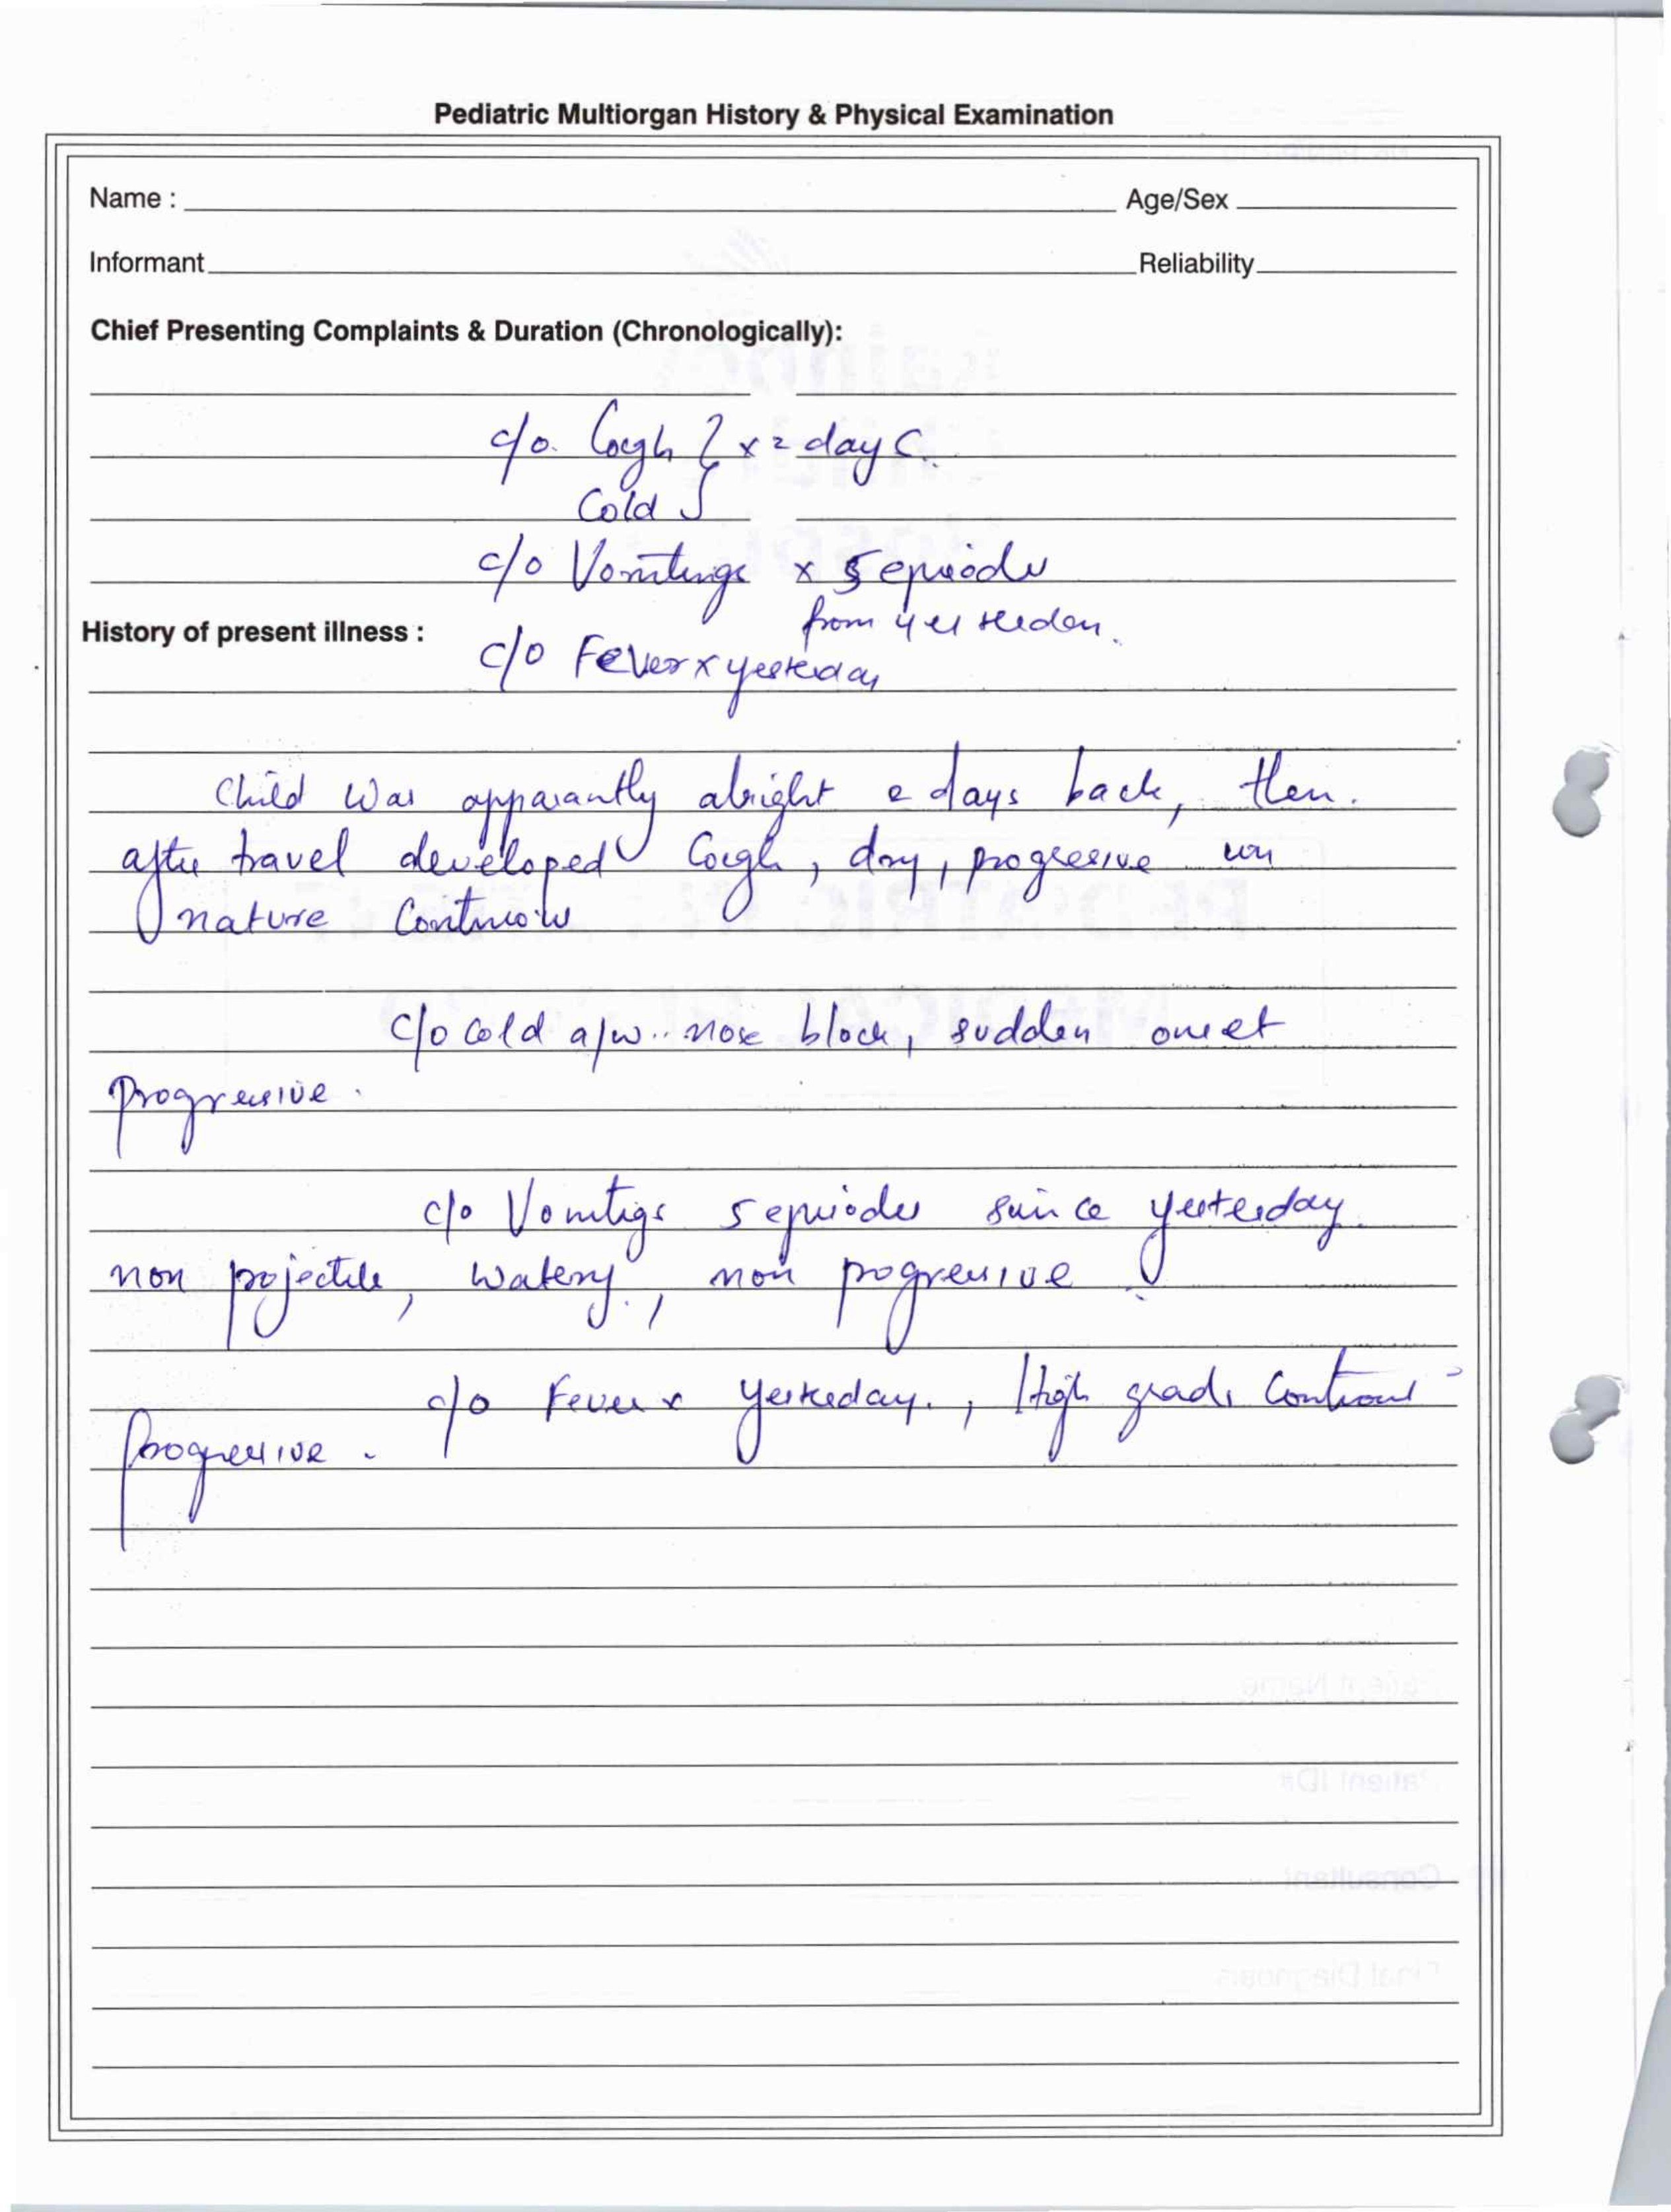 Pediatric Multiorgan History & Physical Examination
Name : Age/Sex
Informant Reliability
Chief Presenting Complaints & Duration (Chronologically):
c/o. Cough } x 2 days.
Cold
c/o Vomitings x 5 episodes
from yesterday.
History of present illness :
c/o Fever x yesterday
Child was apparantly alright 2 days back, then.
after travel developed Cough, dry, progressive in
nature Continous
c/o cold a/w nose block, sudden onset
Progressive.
c/o Vomitigs 5 episodes since yesterday
non projectile, watery, non progressive
c/o Fever x yesterday., High grade Continous
Progressive.